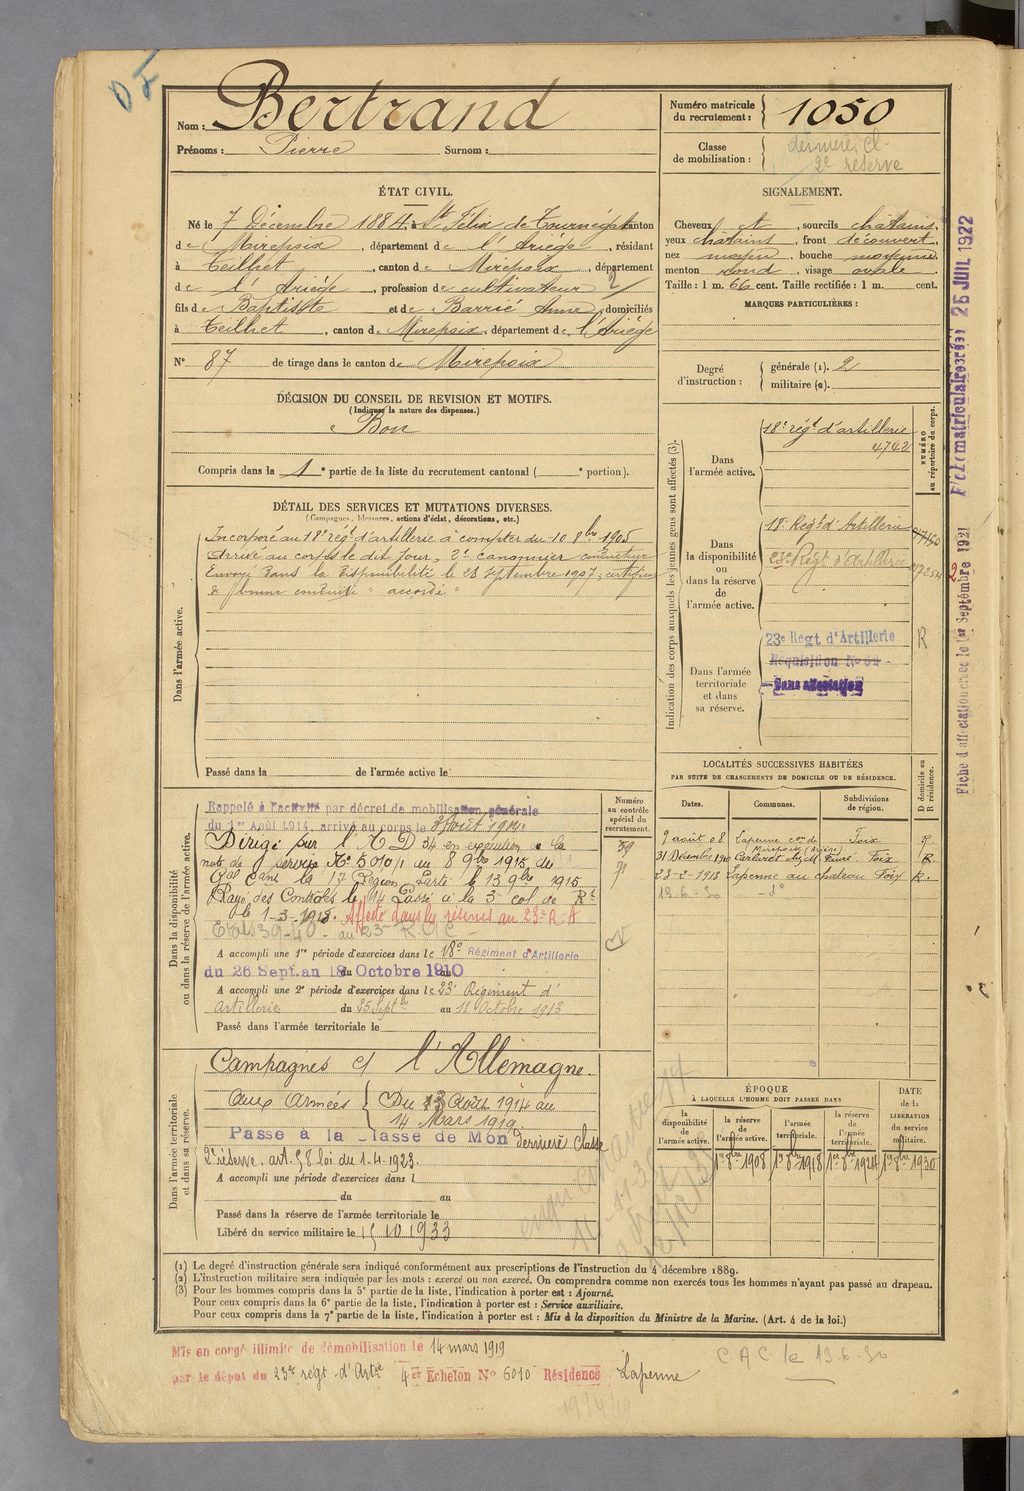 D F
Nom : Bertrand
Prénoms : Pierre Surnom :
Numéro matricule du recrutement : 1050
Classe de mobilisation : dernière Cl-
2e réserve
ÉTAT CIVIL.
Né le 7 Décembre 1884, à St Félix de Tournégat canton
de Mirepoix, département de l'Ariège, résidant
à Teilhet, canton de Mirepoix, département
de l'Ariège, profession de cultivateur 2/
fils de Baptiste et de Barrié Anne, domiciliés
à Teilhet, canton de Mirepoix, département de l'Ariège
N° 87 de tirage dans le canton de Mirepoix
SIGNALEMENT.
Cheveux et, sourcils châtains,
yeux châtains, front découvert,
nez moyen, bouche moyenne,
menton rond, visage ovale.
Taille : 1 m. 66 cent. Taille rectifiée : 1 m. cent.
MARQUES PARTICULIÈRES :
Degré d'instruction : générale (1). 2
militaire (2).
DÉCISION DU CONSEIL DE REVISION ET MOTIFS.
(Indiquer la nature des dispenses.)
Bon
Compris dans la 1e partie de la liste du recrutement cantonal ( e portion).
DÉTAIL DES SERVICES ET MUTATIONS DIVERSES.
(Campagnes, blessures, actions d'éclat, décorations, etc.)
Dans l'armée active.
Incorporé au 18e régt d'artillerie à compter du 10 8bre 1905
Arrivé au corps le dit jour, 2e canonnier conducteur
Envoyé dans la disponibilité le 28 septembre 1907, certificat
de bonne conduite "accordé"
Passé dans la de l'armée active le
Indication des corps auxquels les jeunes gens sont affectés (3).
NUMÉRO au répertoire du corps.
Dans l'armée active.
18e régt d'artillerie
4742
Dans la disponibilité ou dans la réserve de l'armée active.
18e Régt d'Artillerie
23e Régt d'Artillerie
Dans l'armée territoriale et dans sa réserve.
23e Regt d'Artillerie R
Réquisition No
Sans affectation
Fiche d'affectation créée le 1er Septembre 1921
Fiche matriculaire créée 25 JUIL 1922
LOCALITÉS SUCCESSIVES HABITÉES
PAR SUITE DE CHANGEMENTS DE DOMICILE OU DE RÉSIDENCE.
Dates. Communes. Subdivisions de région. D domicile ou R résidence.
9 août 08 Lapenne con de Mirepoix (Ariège) Foix R
31 Décembre 1910 Foix R.
23-2-1913 Lapenne au château Foix R.
13-6-30 -d°
Dans la disponibilité ou dans la réserve de l'armée active.
Numéro au contrôle spécial du recrutement.
Rappelé à l'activité par décret de mobilisation générale
du 1er Août 1914, arrivé au corps le 3 Août 1914.
Dirigé sur l'A D 34 en exécution de la
note de service No 5010/1 du 8 9bre 1915 du
Gal Comt la 17 Région. Parti le 13 9bre 1915
Rayé des Contrôles le 14 Passé à la 5e col de Rt
le 1-3-1918. Affecté dans les réserves au 23e R.A
A accompli une 1re période d'exercices dans le 18e Régiment d'Artillerie
du 26 Sept. au 18 Octobre 1910
A accompli une 2e période d'exercices dans le 23e Régiment d'
Artillerie du 25 Septe au 11 Octobre 1913
Passé dans l'armée territoriale le
Dans l'armée territoriale et dans sa réserve.
Campagnes c/ l'Allemagne.
Aux Armées Du 13 Août 1914 au
14 Mars 1919
Passé à la Classe de Mon dernière classe
2e réserve. art. 58 loi du 1-4-1923.
A accompli une période d'exercices dans l
du au
Passé dans la réserve de l'armée territoriale le
Libéré du service militaire le 15 10 1933
ÉPOQUE
À LAQUELLE L'HOMME DOIT PASSER DANS
la disponibilité de l'armée active. la réserve de l'armée active. l'armée territoriale. la réserve de l'armée territoriale. DATE de la LIBÉRATION du service militaire.
1er 8bre 1908 1er 8bre 1918 1er 8bre 1924 1er 8bre 1930
(1) Le degré d'instruction générale sera indiqué conformément aux prescriptions de l'instruction du 4 décembre 1889.
(2) L'instruction militaire sera indiquée par les mots : exercé ou non exercé. On comprendra comme non exercés tous les hommes n'ayant pas passé au drapeau.
(3) Pour les hommes compris dans la 5e partie de la liste, l'indication à porter est : Ajourné.
Pour ceux compris dans la 6e partie de la liste, l'indication à porter est : Service auxiliaire.
Pour ceux compris dans la 7e partie de la liste, l'indication à porter est : Mis à la disposition du Ministre de la Marine. (Art. 4 de la loi.)
Mis en congé illimité de démobilisation le 14 mars 1919
par le dépôt du 23me régt d'Artie 4e Echelon No 6010 Résidence Lapenne
C A C le 13-6-30